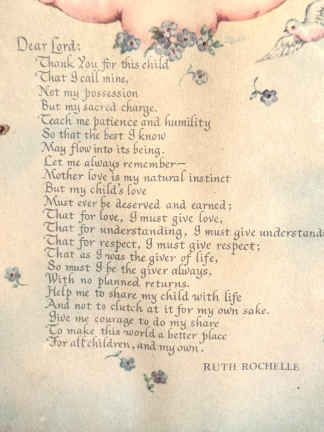 Dear Lord:
Thank You for this child
That I call mine,
Not my possession
But my sacred charge.
Teach me patience and humility
So that the best I know
May flow into its being.
Let me always remember—
Mother love is my natural instinct
But my child's love
Must ever be deserved and earned;
That for love, I must give love,
That for understanding, I must give understand
That for respect, I must give respect;
That as I was the giver of life,
So must I be the giver always,
With no planned returns.
Help me to share my child with life
And not to clutch at it for my own sake.
Give me courage to do my share
To make this world a better place
For all children, and my own.
RUTH ROCHELLE